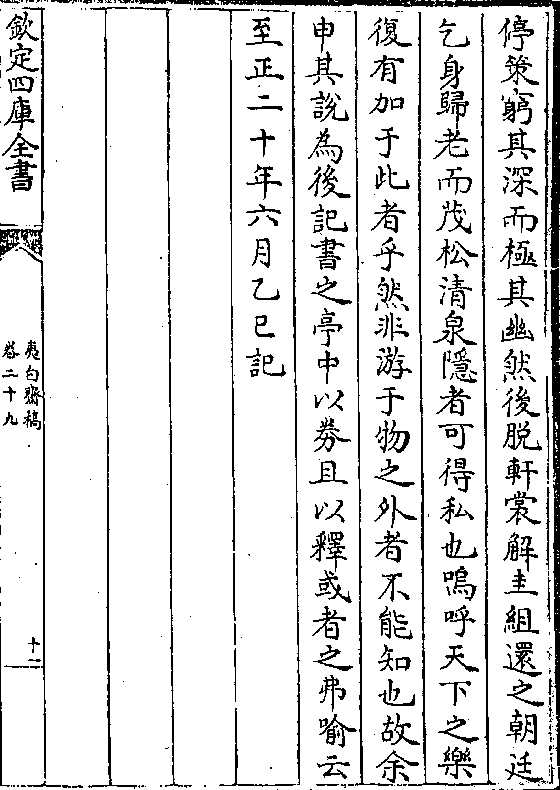 停策窮其深而極其幽然後脱軒裳解圭組還之朝廷
乞身歸老而茂松清泉隱者可得私也嗚呼天下之樂
復有加于此者乎然非游于物之外者不能知也故余
申其說為後記書之亭中以劵且以釋或者之弗喻云
至正二十年六月乙巳記
欽定四庫全書
夷白齋稿
卷二十九
十一